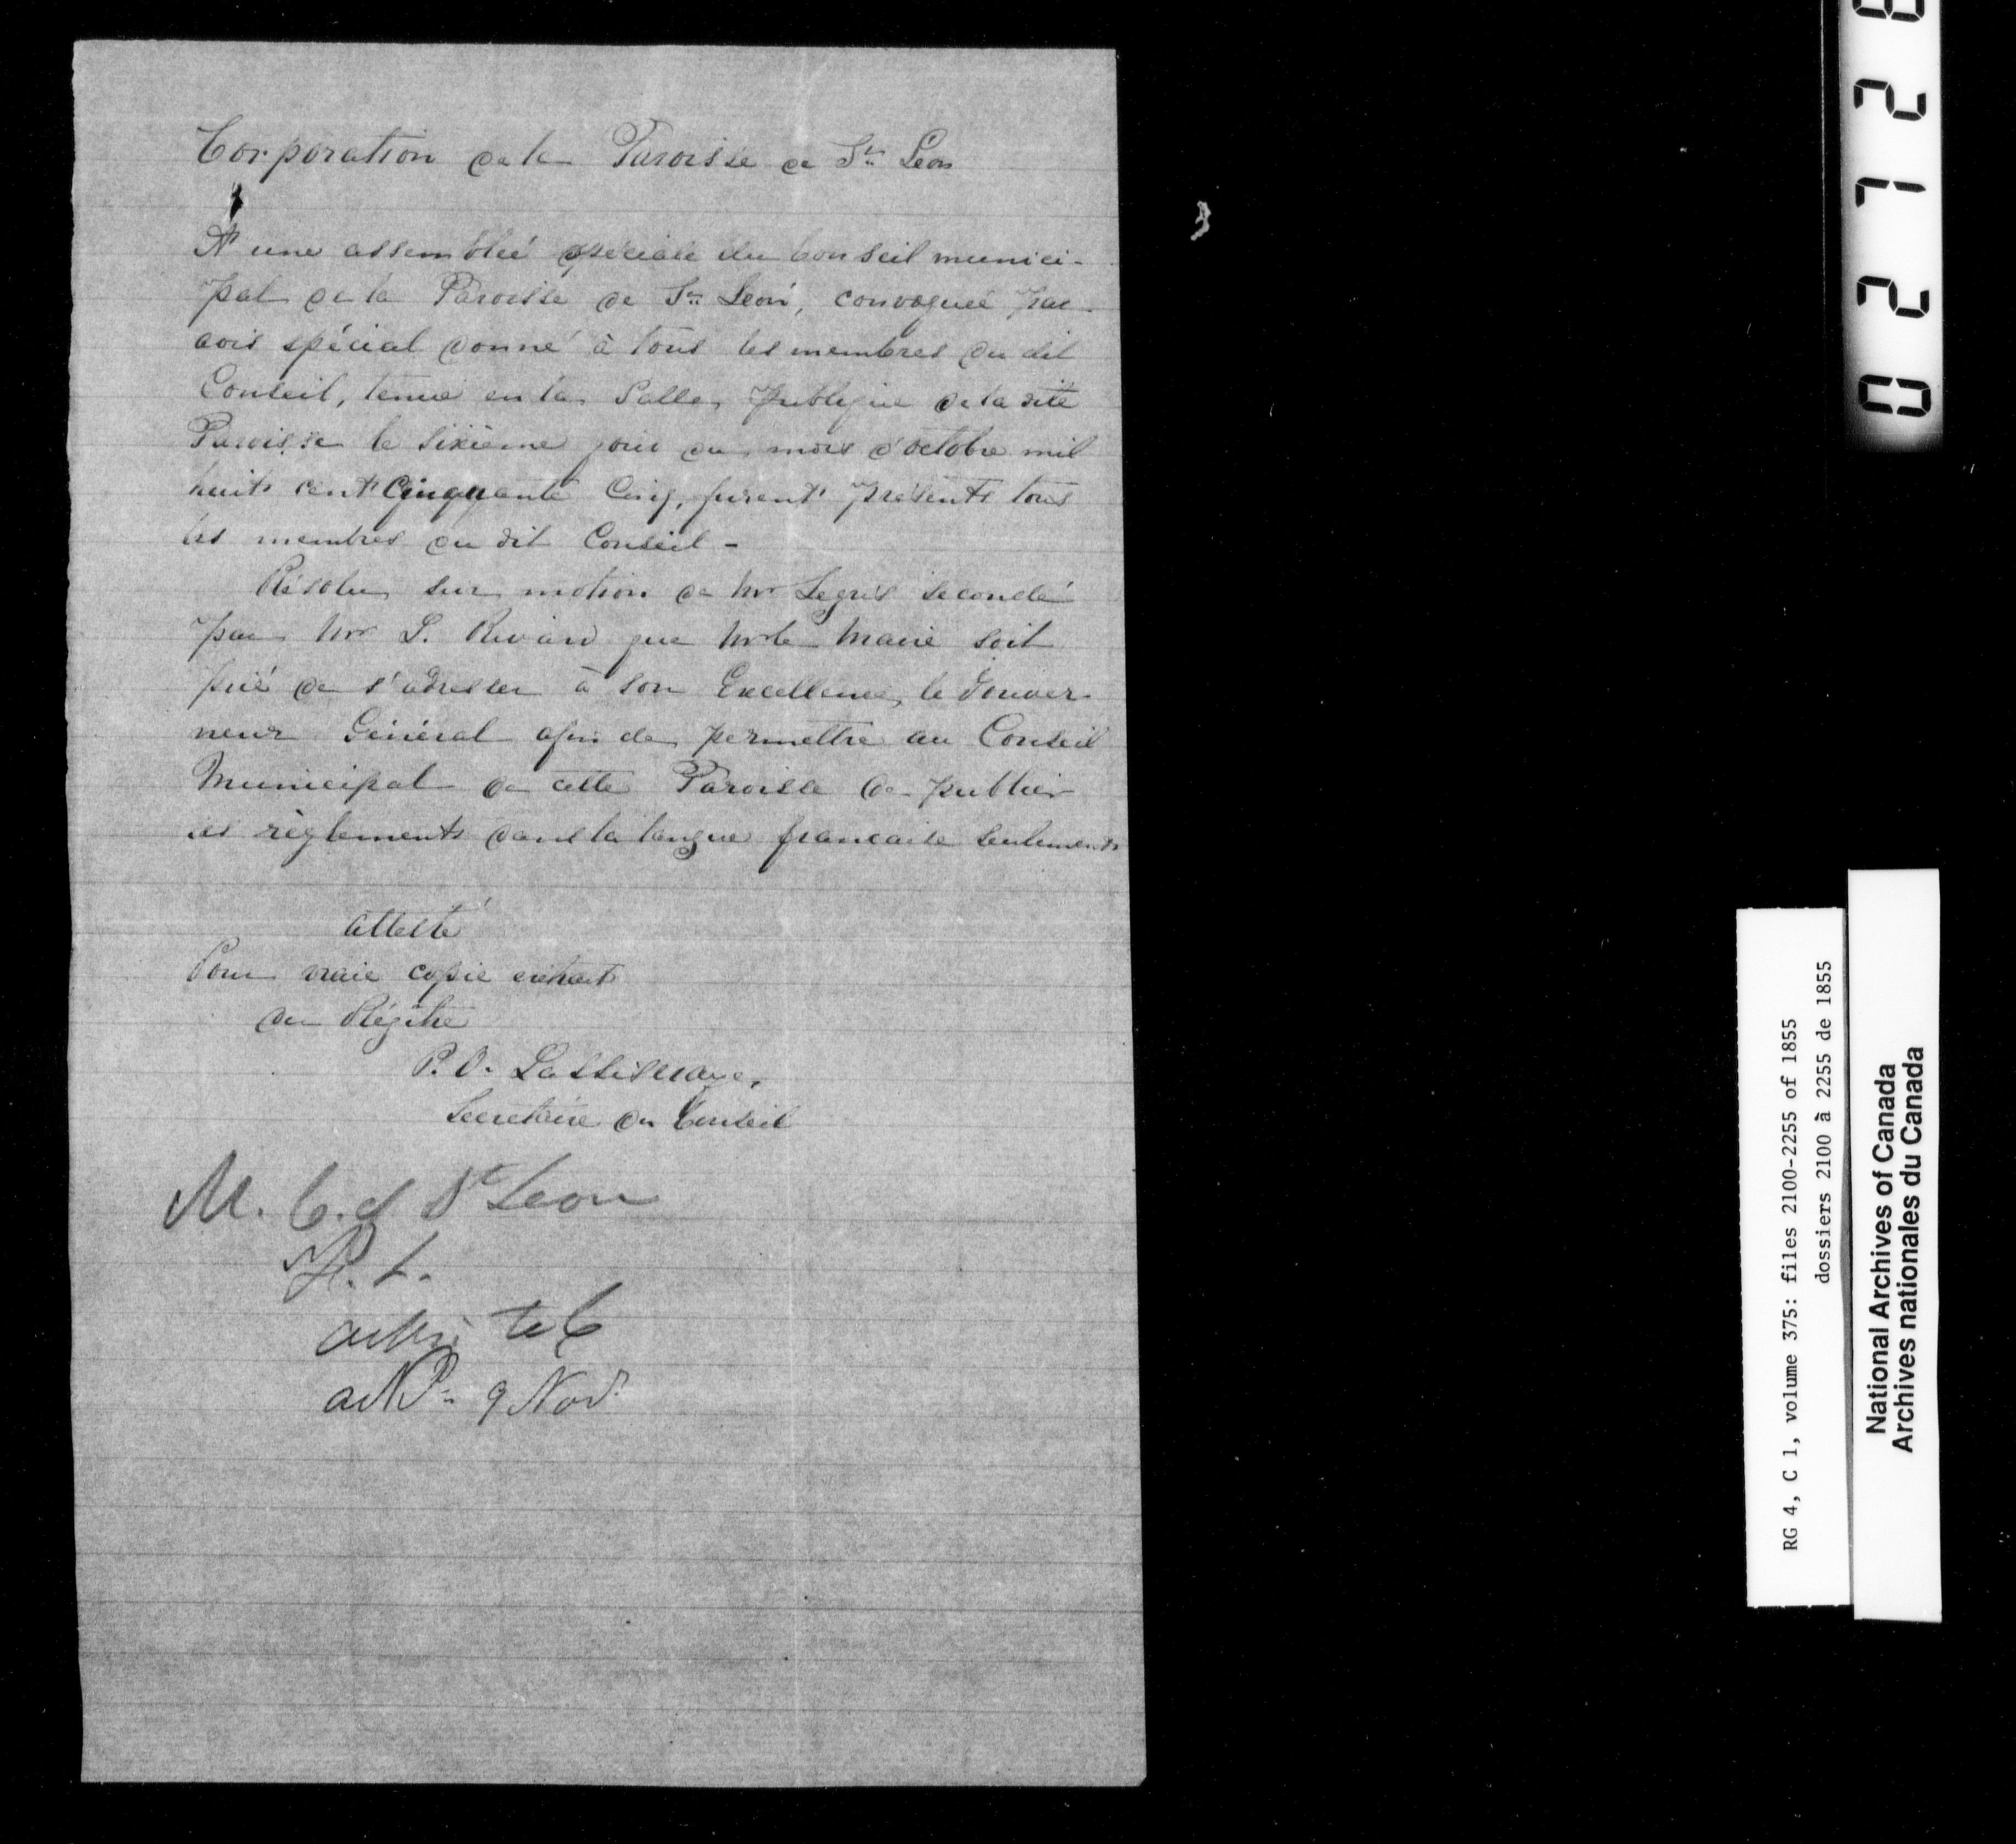 Corporation de la Paroisse de St Leon
A une assembleé spéciale du Conseil munici-
pal de la Paroisse de St Leon, convoqueé par
avis spécial donné à tous les membres du dit
Conseil, tenue en la Salle publique de la dite
Paroisse le sixième jour du mois d'octobre mil
huit cent Cinquante Cinq, furent présents tous
les membres du dit Conseil -
Résolu sur motion de Mr Legris secondé
par Mr L. Rivard que Mr le Maire soit
prié de s'adresser à son Excellence, le Gouver-
neur Général afin de permettre au Conseil
Municipal de cette Paroisse de publier
ses règlements dans la langue francaise seulement
attesté
Pour vraie copie extrait
du Régitre
P. O.
Secretaire du Conseil
M. C. of St Leon
9 Nov.
02128
RG 4, C 1, volume 375: files 2100-2255 of 1855
dossiers 2100 à 2255 de 1855
National Archives of Canada
Archives nationales du Canada